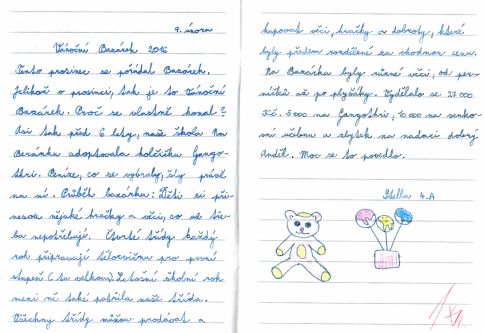 9. února
Vánoční Bazárek 2016
Tento prosinec se pořádal Bazárek.
Jelikož v prosinci, tak je to Vánoční
Bazárek. Proč se vlastně konal?
Asi tak před 6 lety, naše škola Na
Beránku adoptovala holčičku Gango-
shri. Peníze, co se vybraly, šly právě
na ni. Průběh bazárku: Děti si při-
nesou nějaké hračky a věci, co už tře-
ba nepotřebují. Čtvrté třídy každý
rok připravují tělocvičnu pro první
stupeň (tu velkou). Letošní školní rok
mezi ně také patřila naše třída.
Všechny třídy můžou prodávat a
kupovat věci, hračky a dobroty, které
byly předem rozdělené za vhodnou cenu.
Na Bazárku byly různé věci, od per-
níčků až po plyšáky. Vydělalo se 27 000
Kč. 5 000 na Gangoshri, 10 000 na venko-
vní učebnu a zbytek na nadaci dobrý
Anděl. Moc se to povedlo.
Stella 4.A